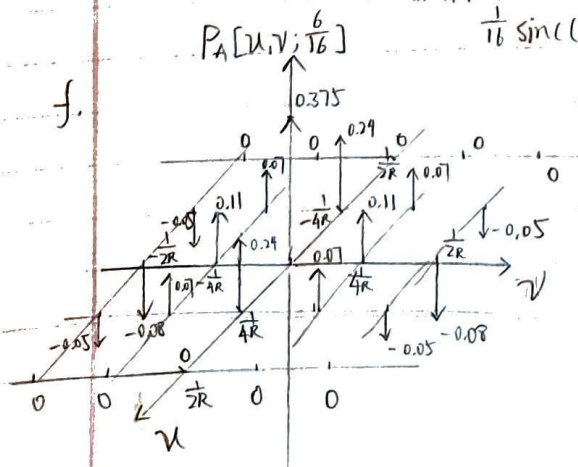 P_A[u,v; 6/16]
1/16 sinc(
f.
0.375
0 0 0.24 0 0 0
0.07 1/2R 0.07
-0.05 0.11 -1/4R 0.11 -0.05
-1/2R 0.24 1/2R
0.07 -1/4R 0.07 1/4R ν
-0.05 -0.08 1/4R -0.05 -0.08
0
0 0 1/2R 0 0
u